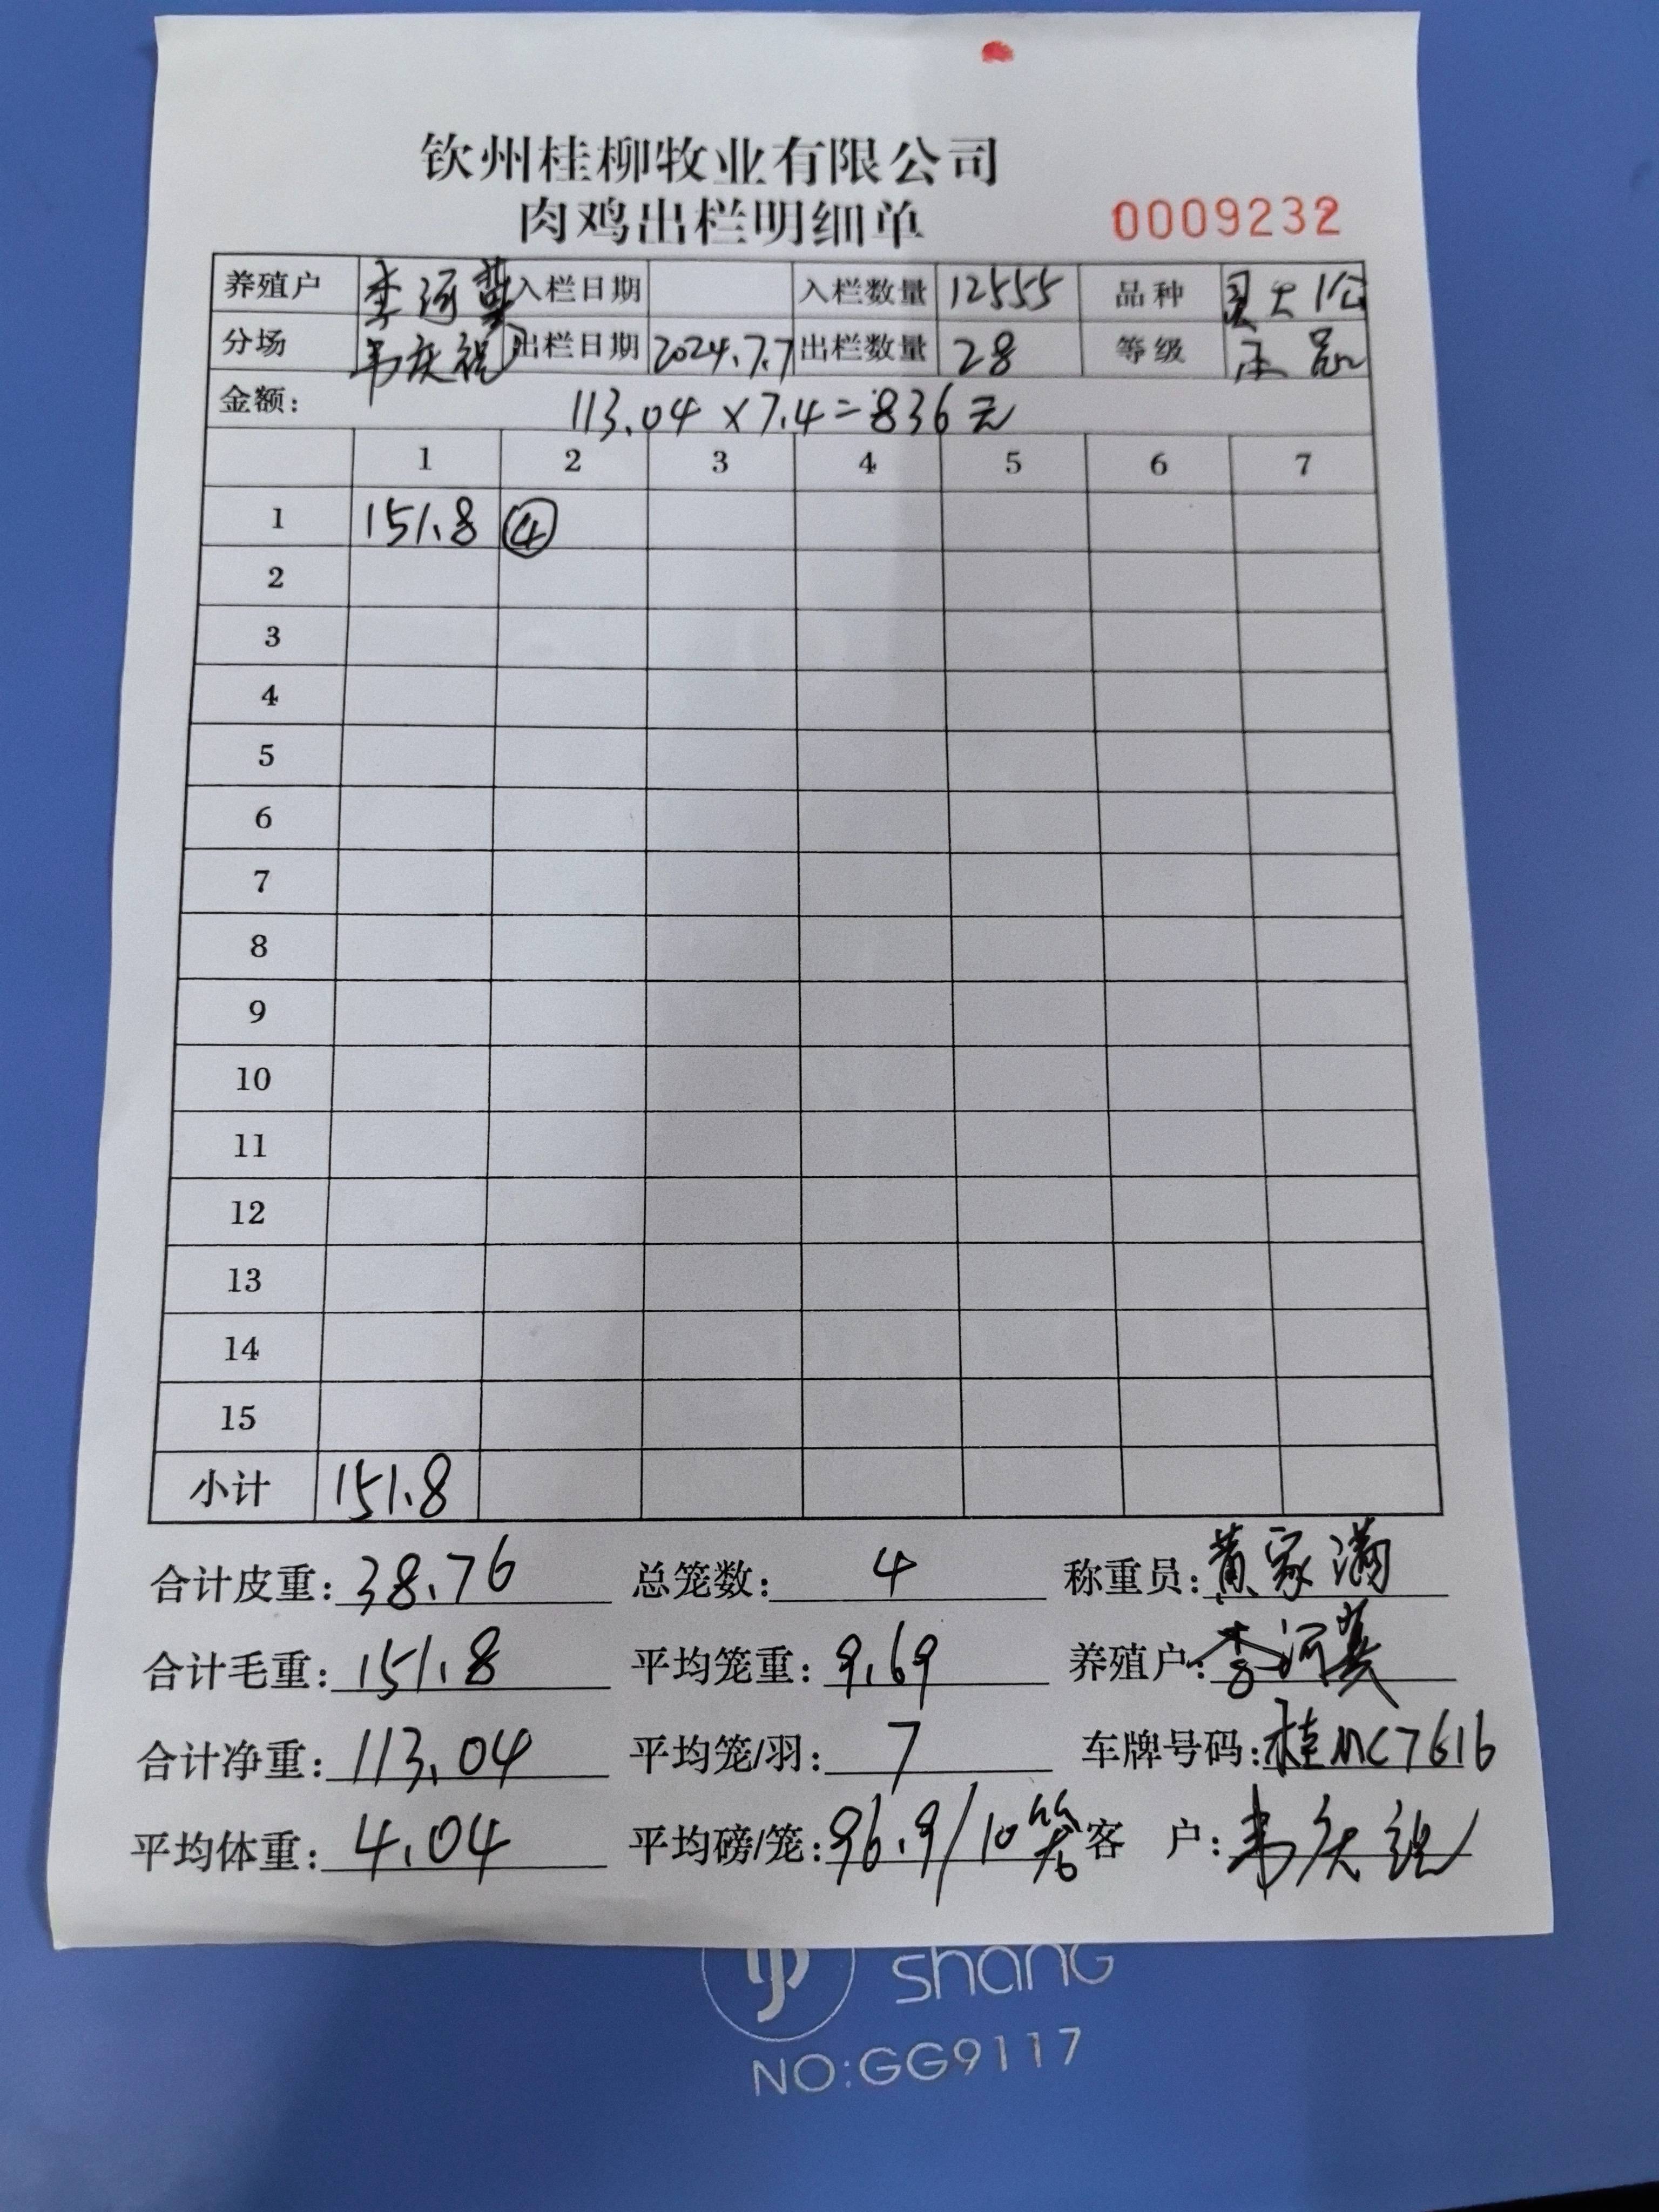 钦州桂柳牧业有限公司
肉鸡出栏明细单 0009232
养殖户 李河英 入栏日期 入栏数量 12555 品种 土1公
分场 韦庆祝 出栏日期 2024.7.7 出栏数量 28 等级
金额: 113.04×7.4=836元
1 2 3 4 5 6 7
1 151.8 ④
2
3
4
5
6
7
8
9
10
11
12
13
14
15
小计 151.8
合计皮重: 38.76 总笼数: 4 称重员: 黄家满
合计毛重: 151.8 平均笼重: 9.69 养殖户: 李河英
合计净重: 113.04 平均笼/羽: 7 车牌号码: 桂NC7616
平均体重: 4.04 平均磅/笼: 96.9/10 客 户: 韦庆祝
shang
NO:GG9117